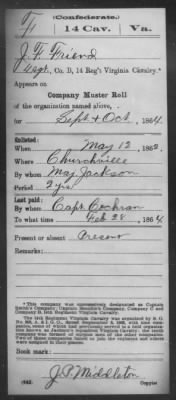 (Confederate.)
F 14 Cav. Va.
J. F. Friend
Sergt, Co. D, 14 Reg't Virginia Cavalry.*
Appears on
Company Muster Roll
of the organization named above,
for Sept & Oct, 1864.
Enlisted:
When May 12, 1862.
Where Churchville
By whom Maj. Jackson
Period 2 yrs
Last paid:
By whom Capt. Cochran
To what time Feb 28, 1864.
Present or absent Present
Remarks:
*This company was successively designated as Captain
Book mark:
(642) J. P. Middleton
Copyist